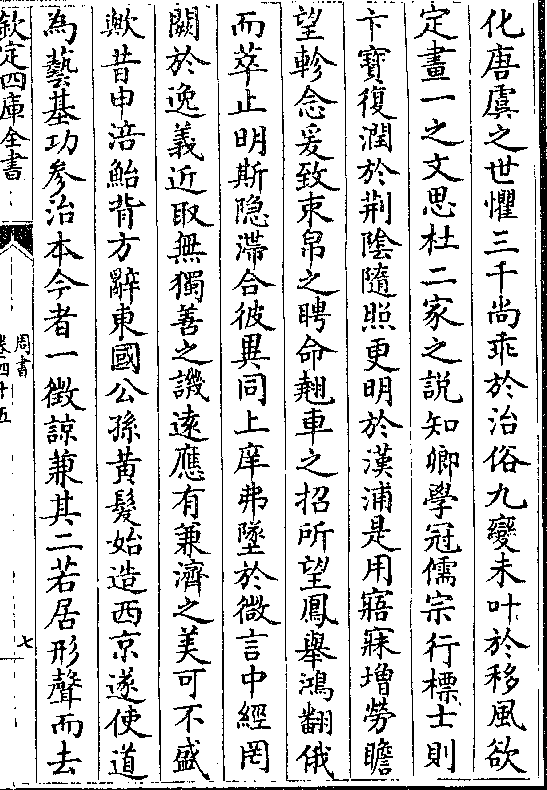 化唐虞之世懼三千尚乖於治俗九變未叶於移風欲
定畫一之文思杜二家之說知卿學冠儒宗行標士則
卞寶復潤於荆陰隨照更明於漢浦是用寤寐増勞瞻
望軫念爰致束帛之聘命翹車之招所望鳳舉鴻翻俄
而萃止明斯隐滯合彼異同上庠弗墜於微言中經罔
闕於逸義近取無獨善之譏遠應有兼濟之美可不盛
歟昔申涪鮐背方辭東國公孫黄髮始造西京遂使道
為藝基功参治本今者一徴諒兼其二若居形聲而去
欽定四庫全書
周書
卷四十五
七